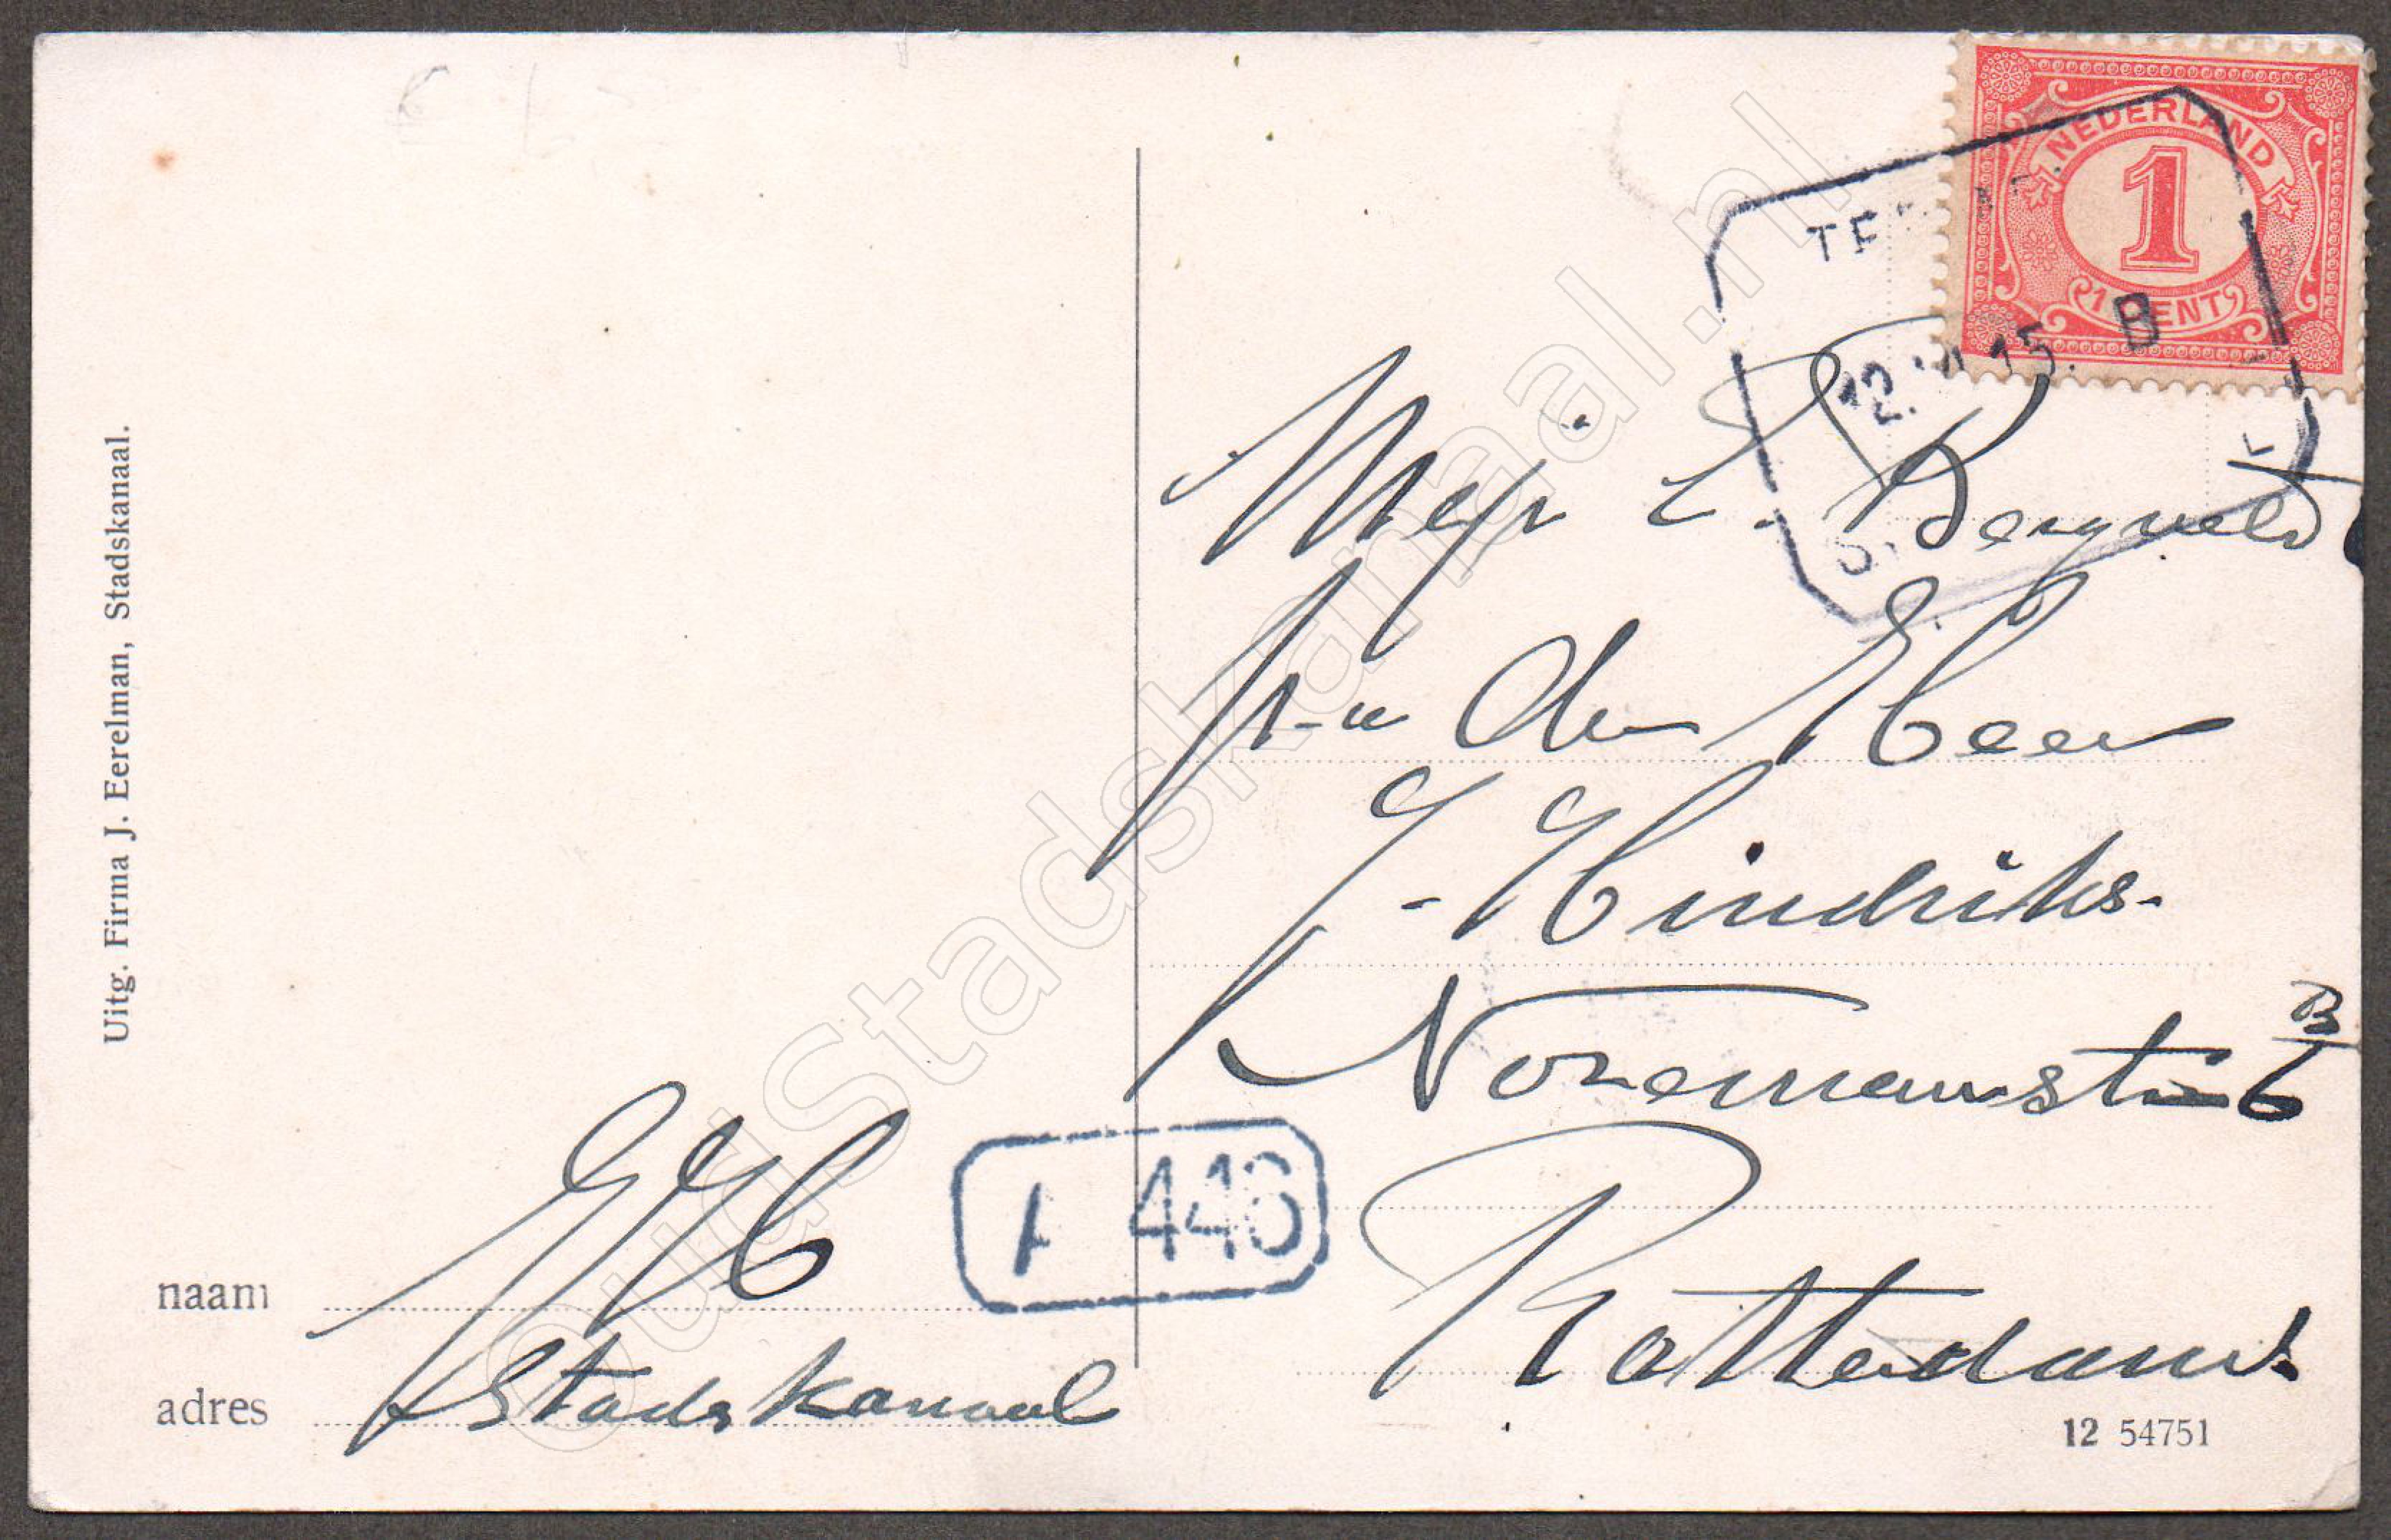 NEDERLAND
1
1 CENT
12. 15. B
Mejr L. Bergveld
p-a den Heer
J. Hindriks.
Nozemanstr 6 B
Rotterdam.
Uitg. Firma J. Eerelman, Stadskanaal.
A 446
naam
adres Stadskanaal
12 54751
OudStadskanaal.nl